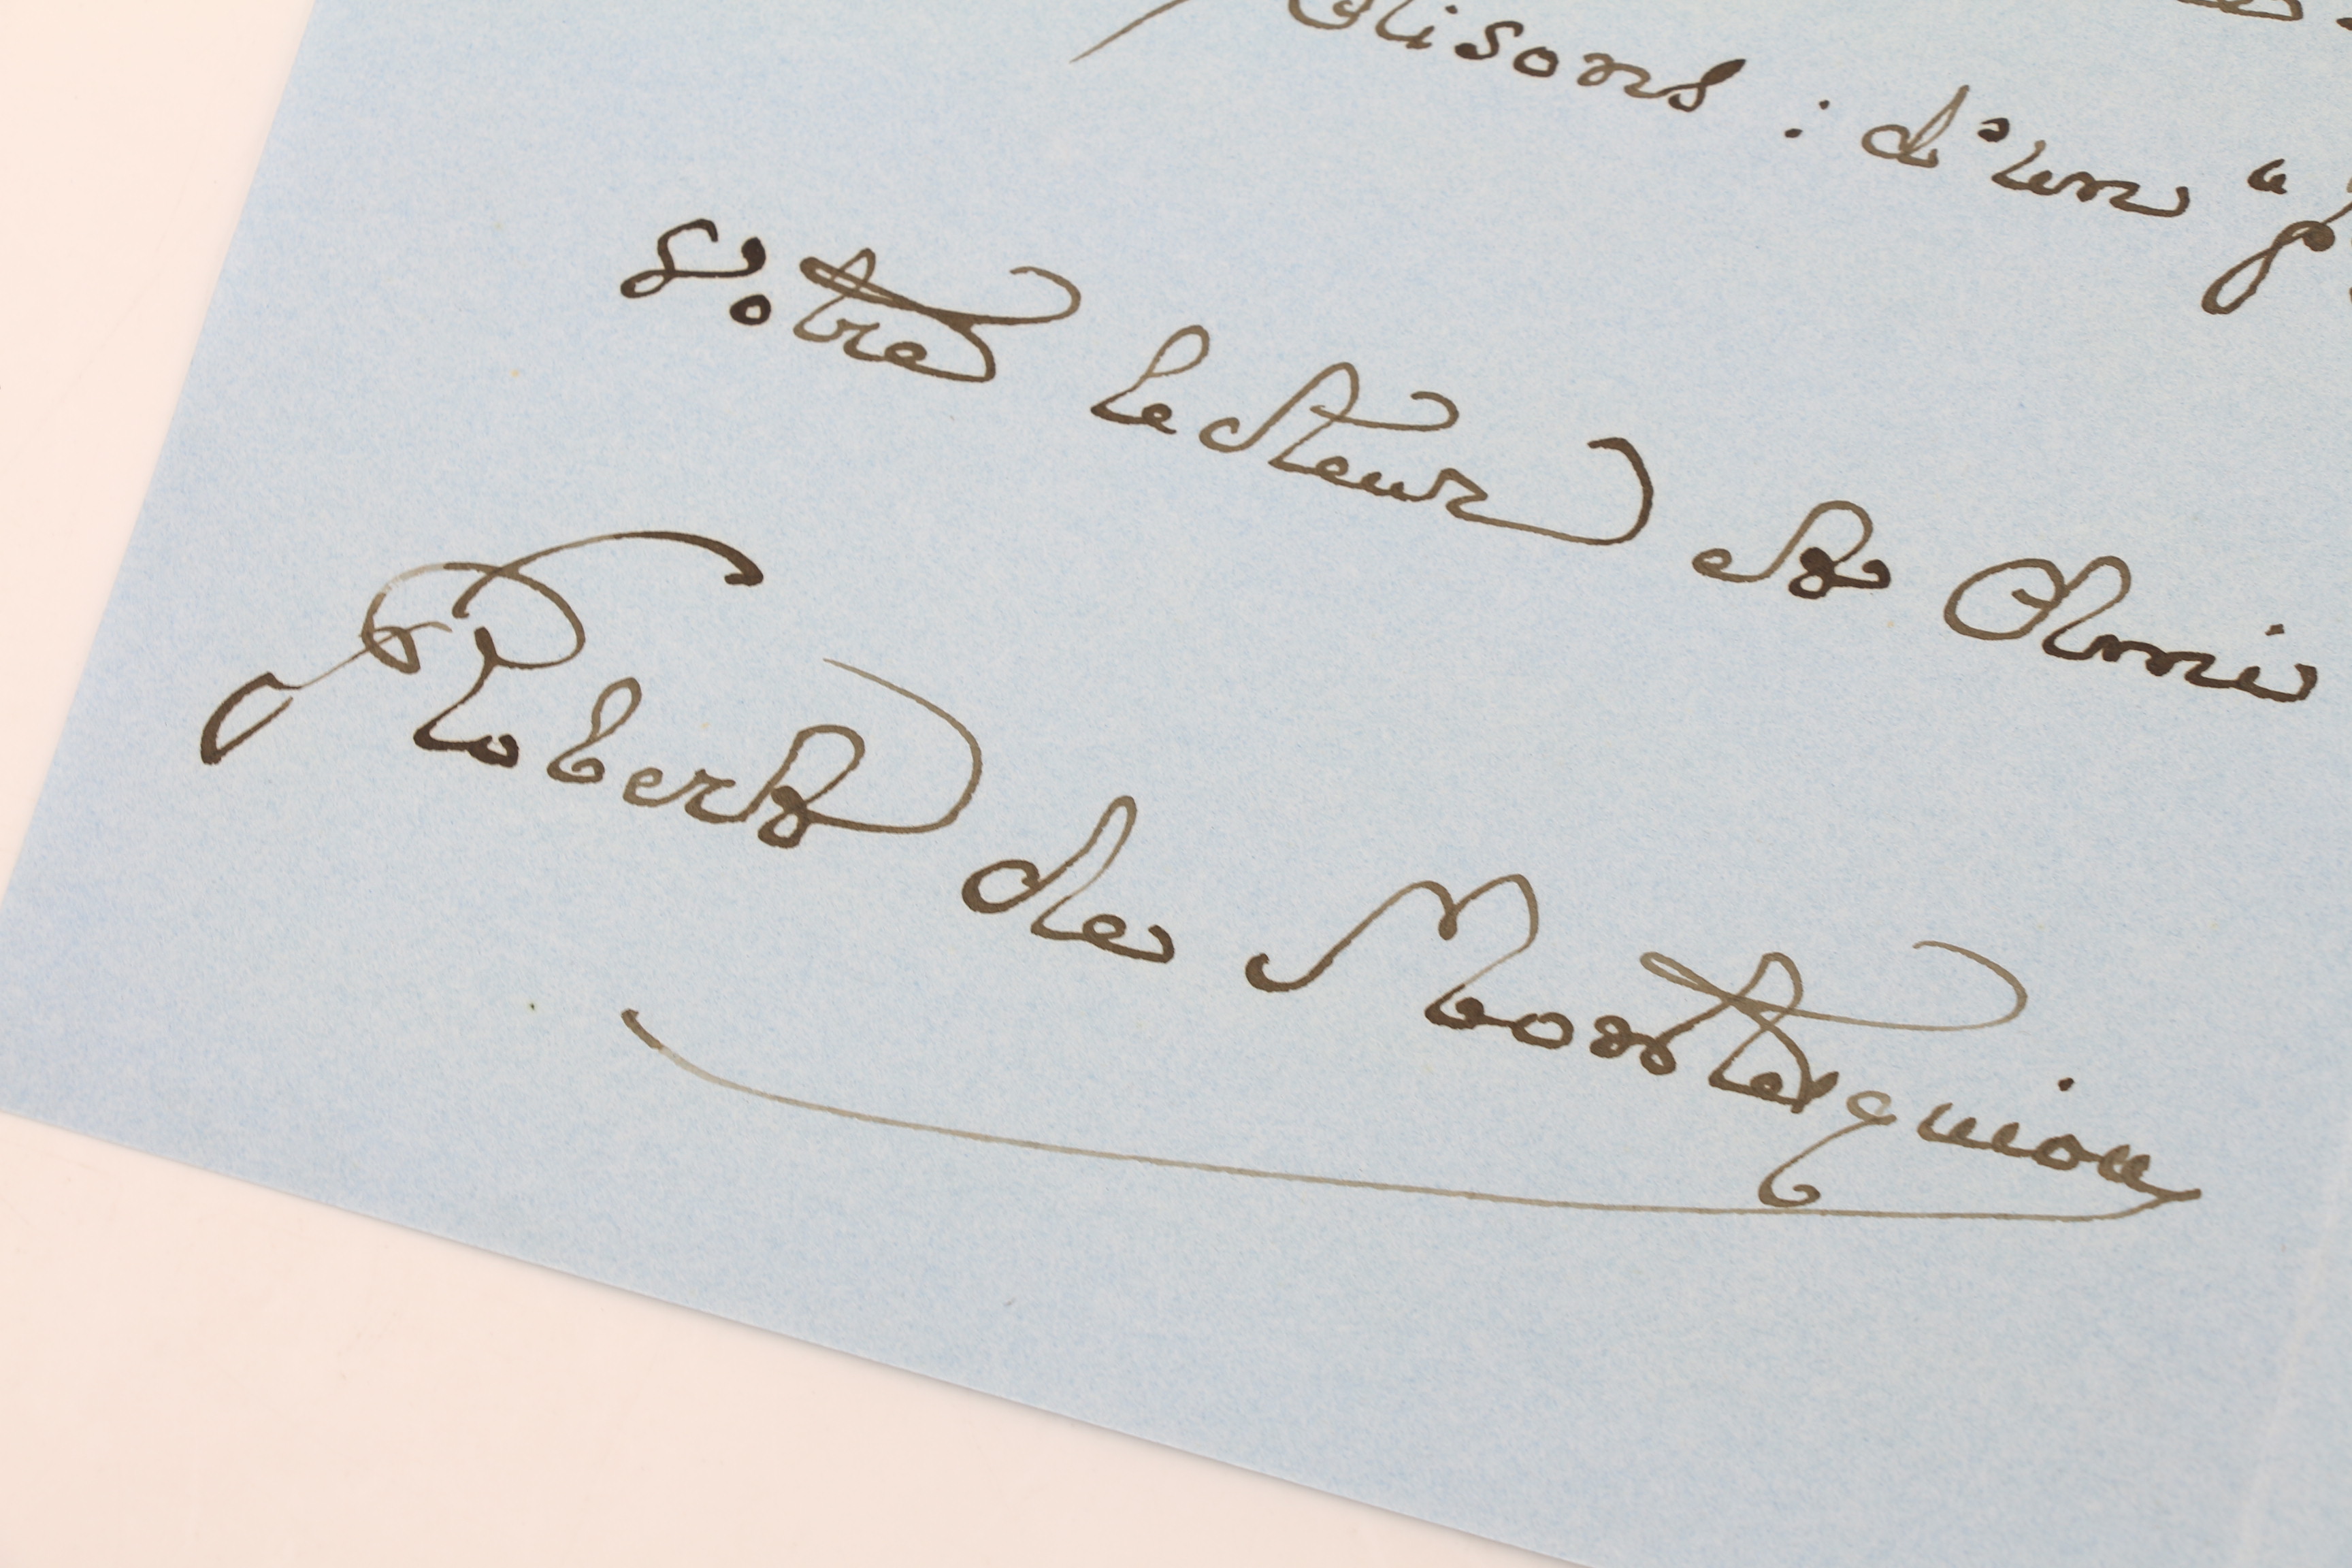 disons : d'un "
Votre lecteur et Ami
Robert de Montesquiou